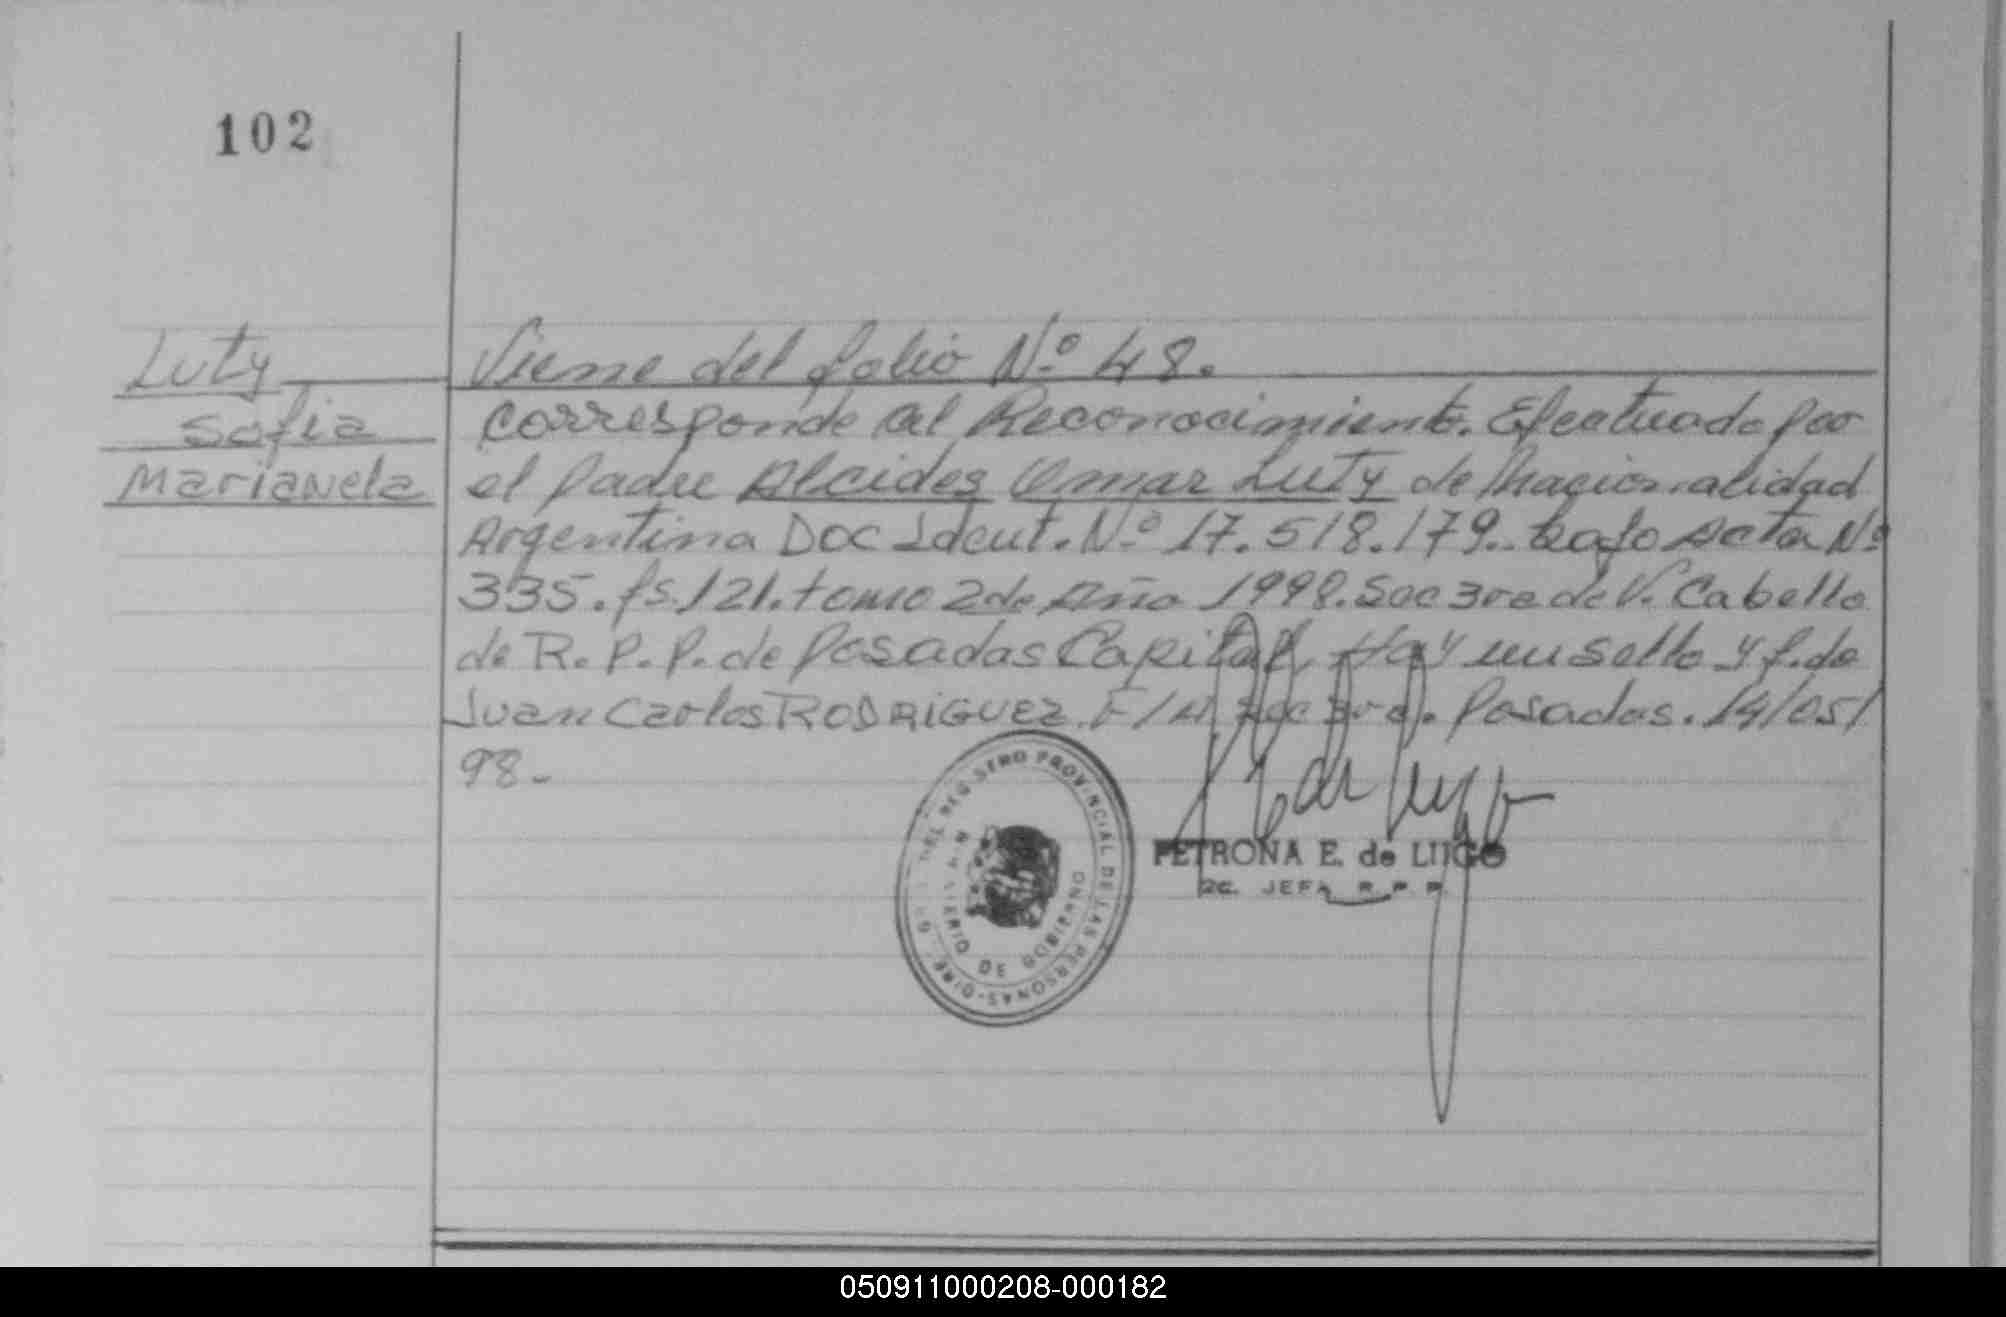 102
Luty
Sofia
Marianela
Viene del folio Nº 48.
Corresponde al Reconocimiento. Efectuado por
el Padre Alcides Omar Luty de Nacionalidad
Argentina Doc Ident. Nº 17.518.179. bajo Acta Nº
335. fs. 121. tomo 2 de Año 1998. Sec 3ra de V. Cabello
de R. P. P. de Posadas Capital, Hay un sello y f. de
Juan Carlos RODRIGUEZ. F/A Sec 3ra. Posadas. 14/05/
98.-
REGISTRO PROVINCIAL DE LAS PERSONAS
DE GOBIERNO
PETRONA E. de LUGO
JEFA R. P. P.
050911000208-000182